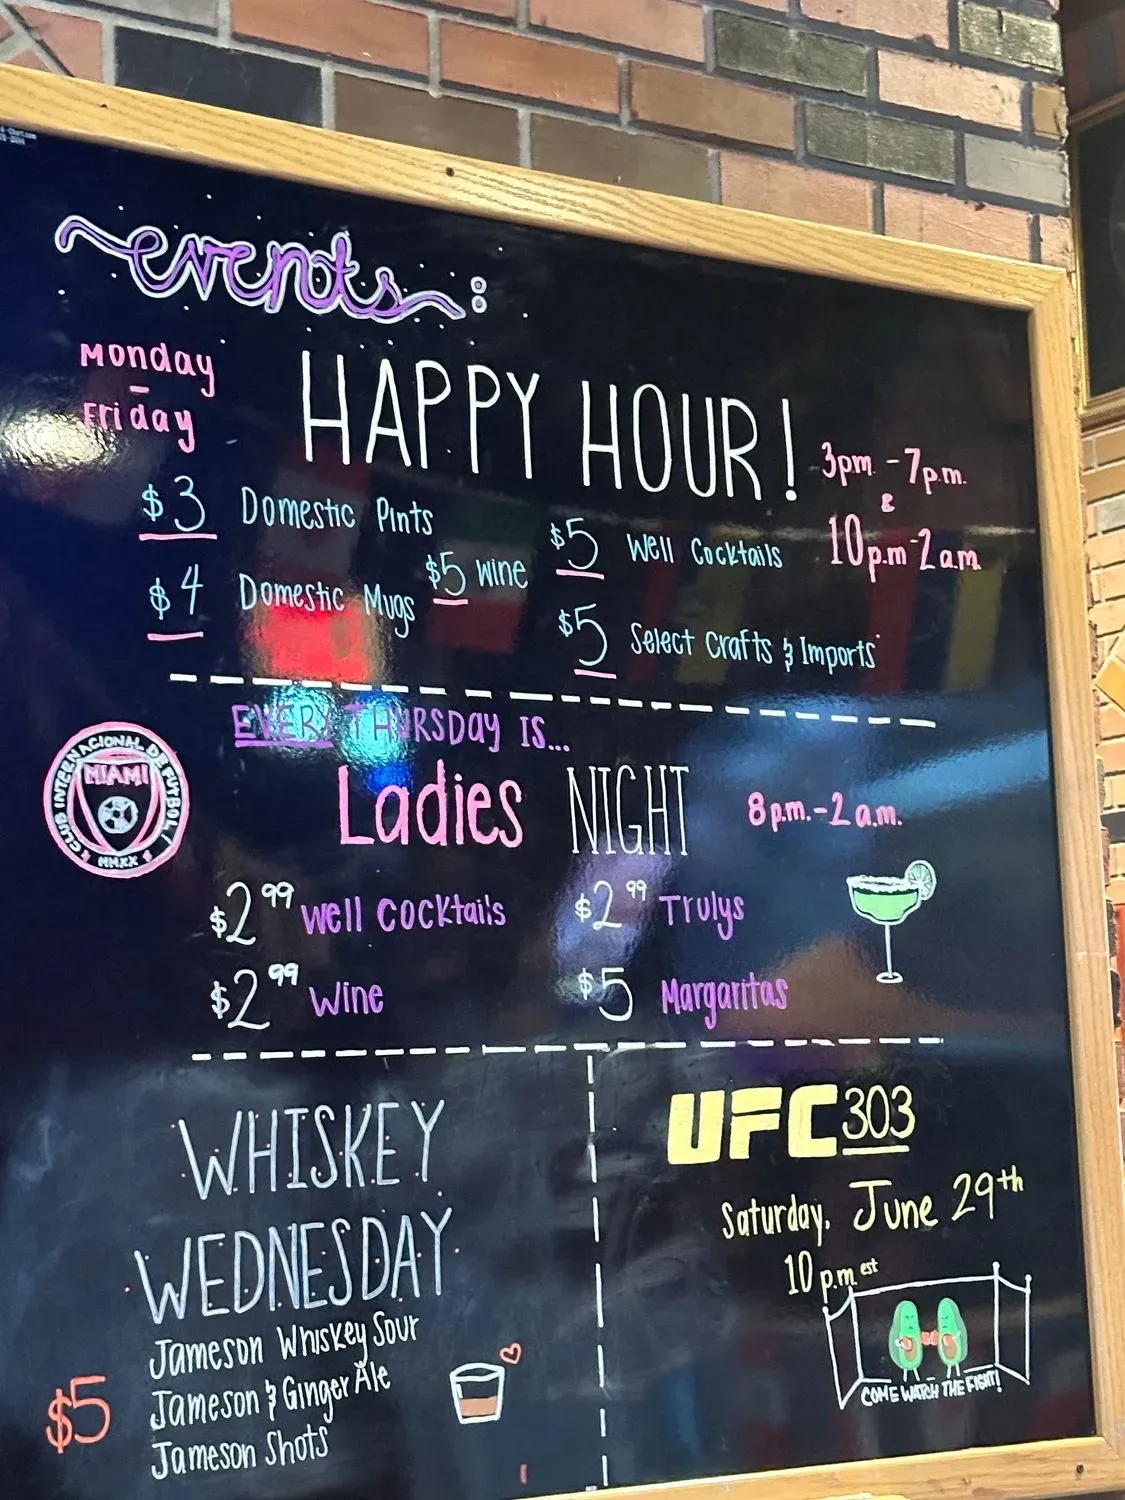 events:
Monday
-
Friday
HAPPY HOUR!
3pm - 7p.m.
&
10p.m-2a.m.
$3 Domestic Pints
$4 Domestic Mugs
$5 wine
$5 Well Cocktails
$5 Select Crafts & Imports
EVERY THURSDAY IS...
Ladies NIGHT
8p.m.-2a.m.
CLUB INTERNACIONAL DE FÚTBOL
MIAMI
MMXX
$2.99 Well Cocktails
$2.99 Trulys
$2.99 Wine
$5 Margaritas
WHISKEY
WEDNESDAY
$5
Jameson Whiskey Sour
Jameson & Ginger Ale
Jameson Shots
UFC 303
Saturday, June 29th
10 p.m est
COME WATCH THE FIGHT!